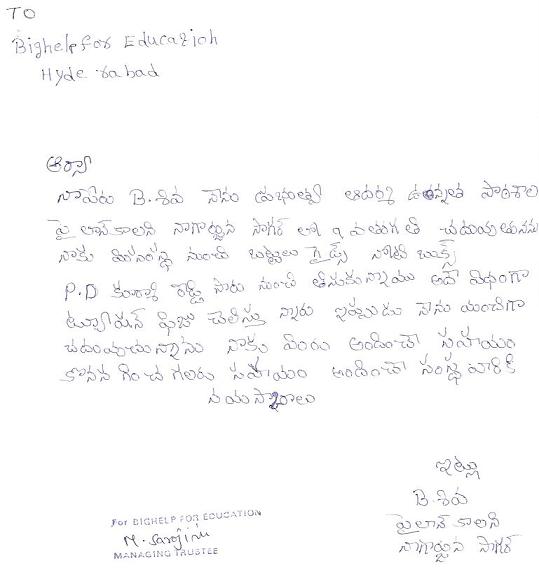 TO
Bighelp for Education
Hyderabad
ఆర్యా
నా పేరు B. శివ నేను ప్రభుత్వ ఆదర్శ ఉన్నత పాఠశాల
పైలాన్ కాలని నాగార్జున సాగర్ లో 9 వ తరగతి చదువుతున్నను
నాకు మీ సంస్థ నుంచి బట్టలు గైడ్స్ నోట్ బుక్స్
P.D రెడ్డి సారు నుంచి తీసుకున్నాము అదే విధంగా
ట్యూషన్ ఫీజు చెలిస్తు న్నారు ఇప్పుడు నేను మంచిగా
చదువుచున్నాను నాకు మీరు అందించె సహాయం
కొనసాగించ గలరు సహాయం అందించె సంస్థ వారికి
నమస్కారాలు
ఇట్లు
B. శివ
పైలాన్ కాలని
నాగార్జున సాగర్
For BIGHELP FOR EDUCATION
M. Sarojini
MANAGING TRUSTEE